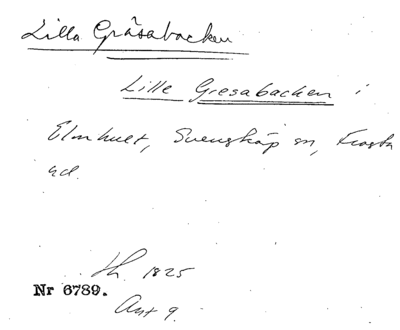 Lilla Gräsabacken
Lille Gresabacken i
Elmhult, Svensköp sn, Frosta
hd.
Lh. 1825
Nr 6789.
Ant 9.